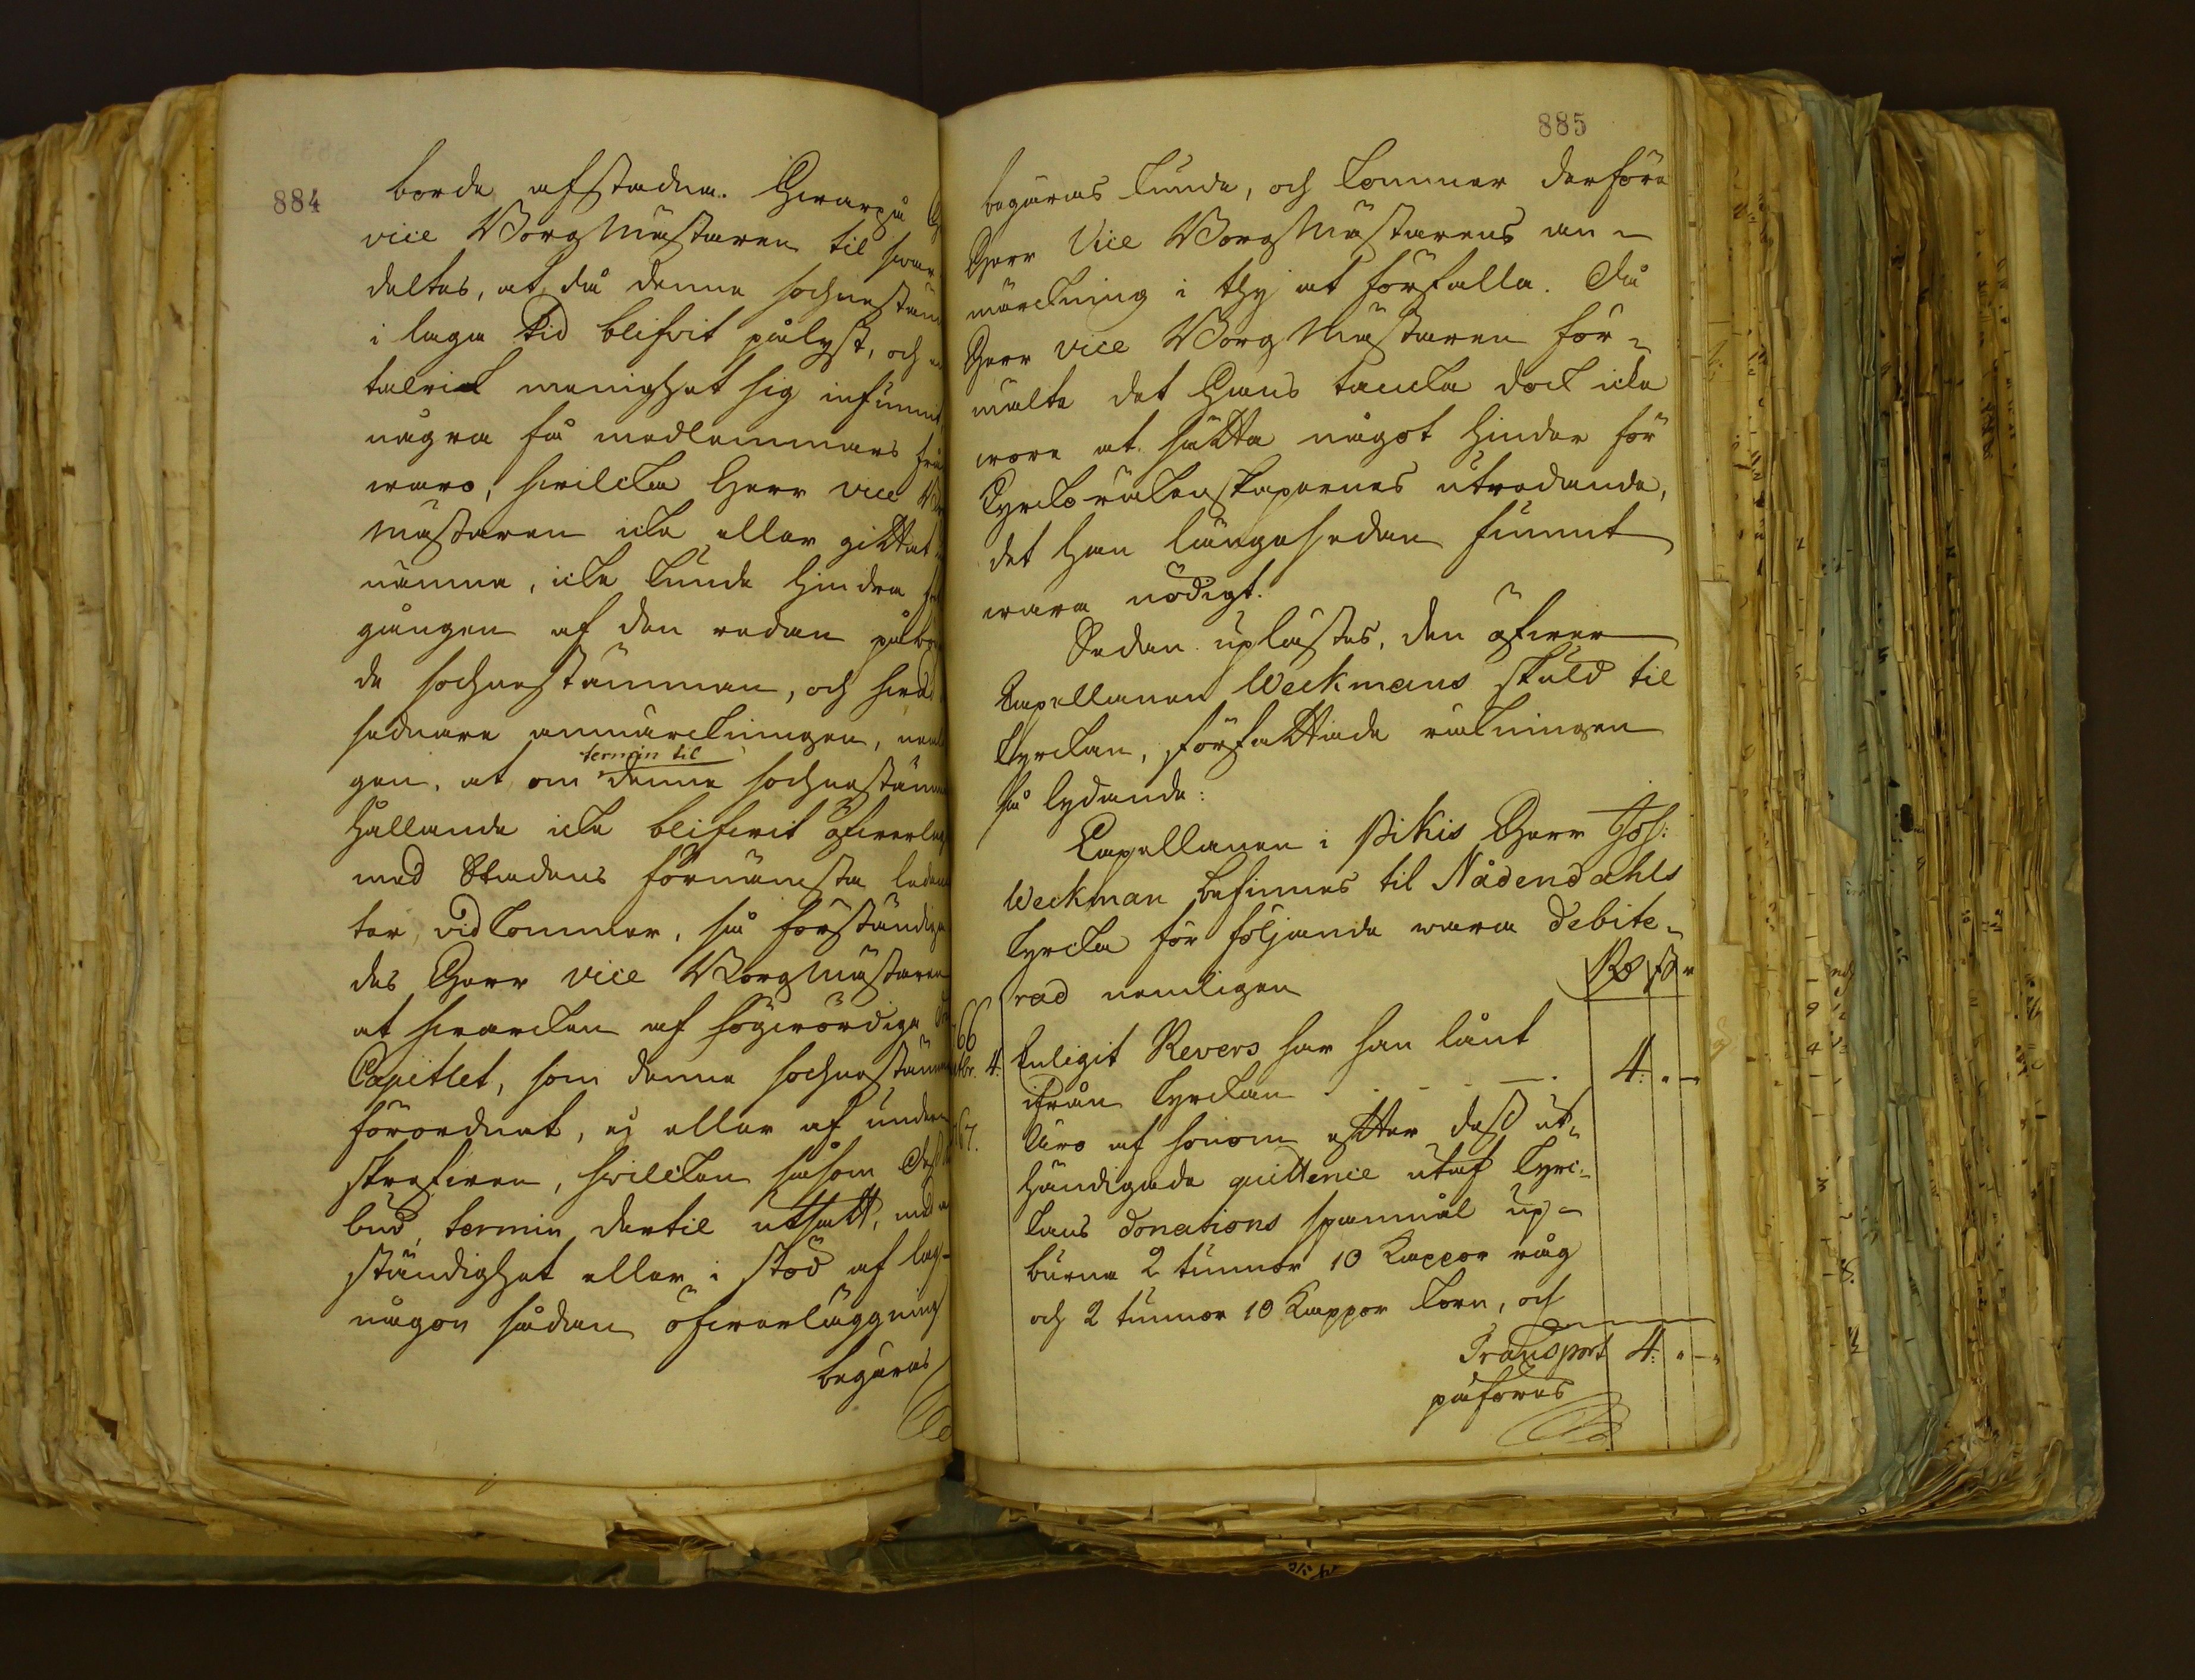 884
borde afstadna. Hwarpå
vice Borgmästaren til swar
deltes, at då denne sochnestäm
i laga tid blifvit pålyst, och en
talrick menighet sig infunnit,
några få medlemmars från
waro, hwilcka Herr vice Bor
mästaren icke eller gittat
nämna, icke kunde hindra fort
gången af den redan påbör
de sochnestämman, och hwad
sednare anmärckningen, nemli
gen, at om termin til denna sochnestämmas
hållande icke blifwit öfwerlag
med Stadens förnämsta leda
ter, vidkommer, så förständiga
des Herr vice Borgmästaren
at hwarcken af högwördige
Capitlet, som denne sochnestämma
förordnat, ej eller af under
skrefwen, hwilcken såsom
bud, termin dertil utsatt, med
ständighet eller i stöd af lag
någon sådan öfwerläggning
begäras
885
begäras kunde, och kommer derföre
Herr Vice Borgmästarens an-
märckning i thy at förfalla. Då
Herr vice Borgmästaren för-
mälte det Hans tancka dock icke
wore at sätta något hinder för
Kyrckoräkenskapernes utredande,
det han längesedan funnit
wara nödigt.
Sedan uplästes, den öfwer
Capellanen Weckmans skuld til
Kyrckan, författade räkningen
så lydande:
Capellanen i Pikis Herr Joh:
Weckman befinnes til Nådendahls
Kyrcka för följande wara debite-
rad nemligen
66
4. Enligit Revers har han lånt
ifrån Kyrckan - - - 4: " -
67. Äro af honom efter dess ut-
händigade quittence utaf Kyrc-
kans donations spanmål up-
burne 2 tunnor 10 Kappor råg
och 2 tunnor 10 Kappor korn, och
Transport 4: " - "
påföres